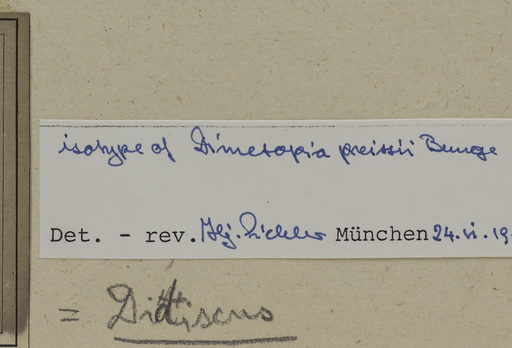 isotype of Dimetopia preissii Bunge
Det. - rev. Hj. Eichler München 24.vi.19
= Didiscus